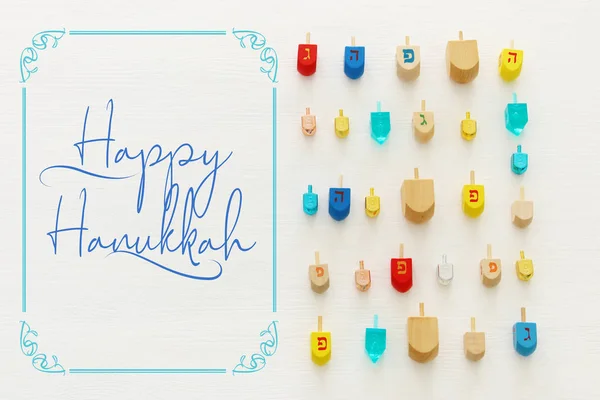 Happy
Hanukkah
ג ה ה
ג
ה פ
פ פ פ
פ ג